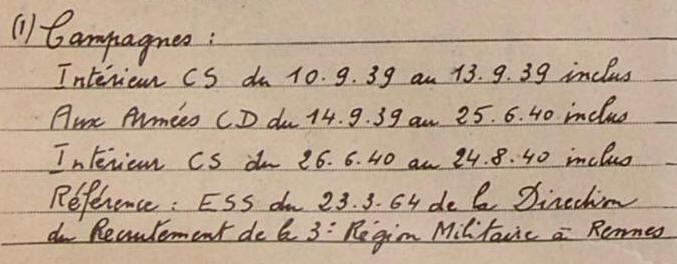 (1) Campagnes :
Intérieur CS du 10.9.39 au 13.9.39 inclus
Aux Armées CD du 14.9.39 au 25.6.40 inclus
Intérieur CS du 26.6.40 au 24.8.40 inclus
Référence : ESS du 23.3.64 de la Direction
du Recrutement de la 3e Région Militaire à Rennes